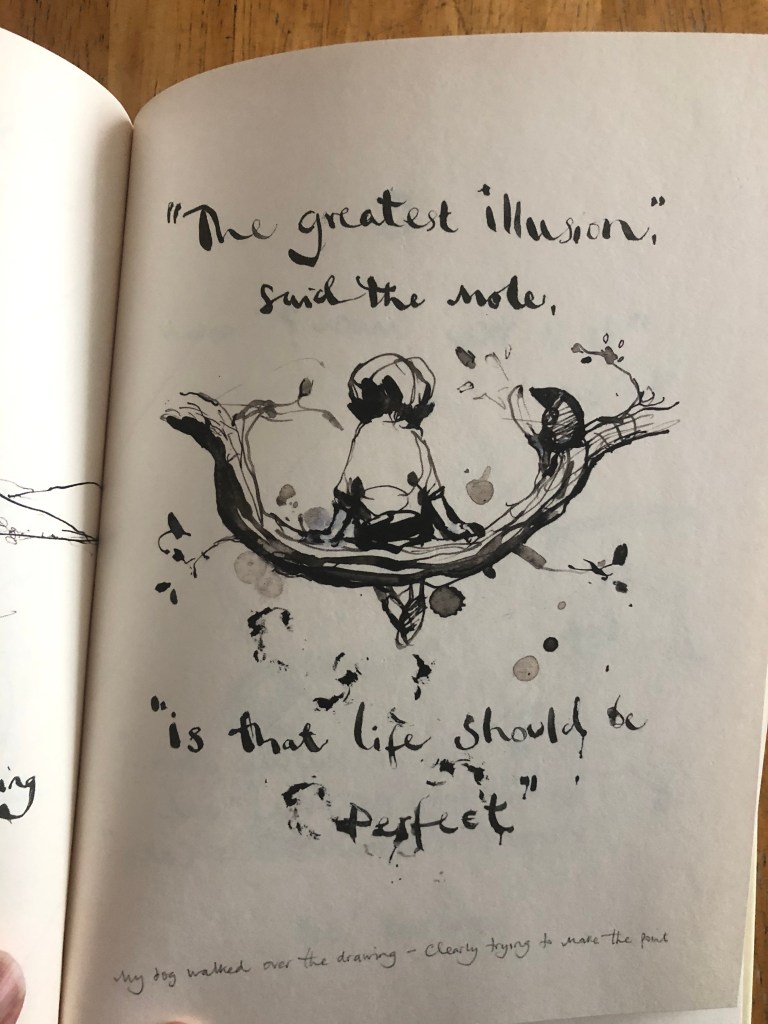 "The greatest illusion,"
said the mole,
"is that life should be
perfect"
ing
My dog walked over the drawing – clearly trying to make the point